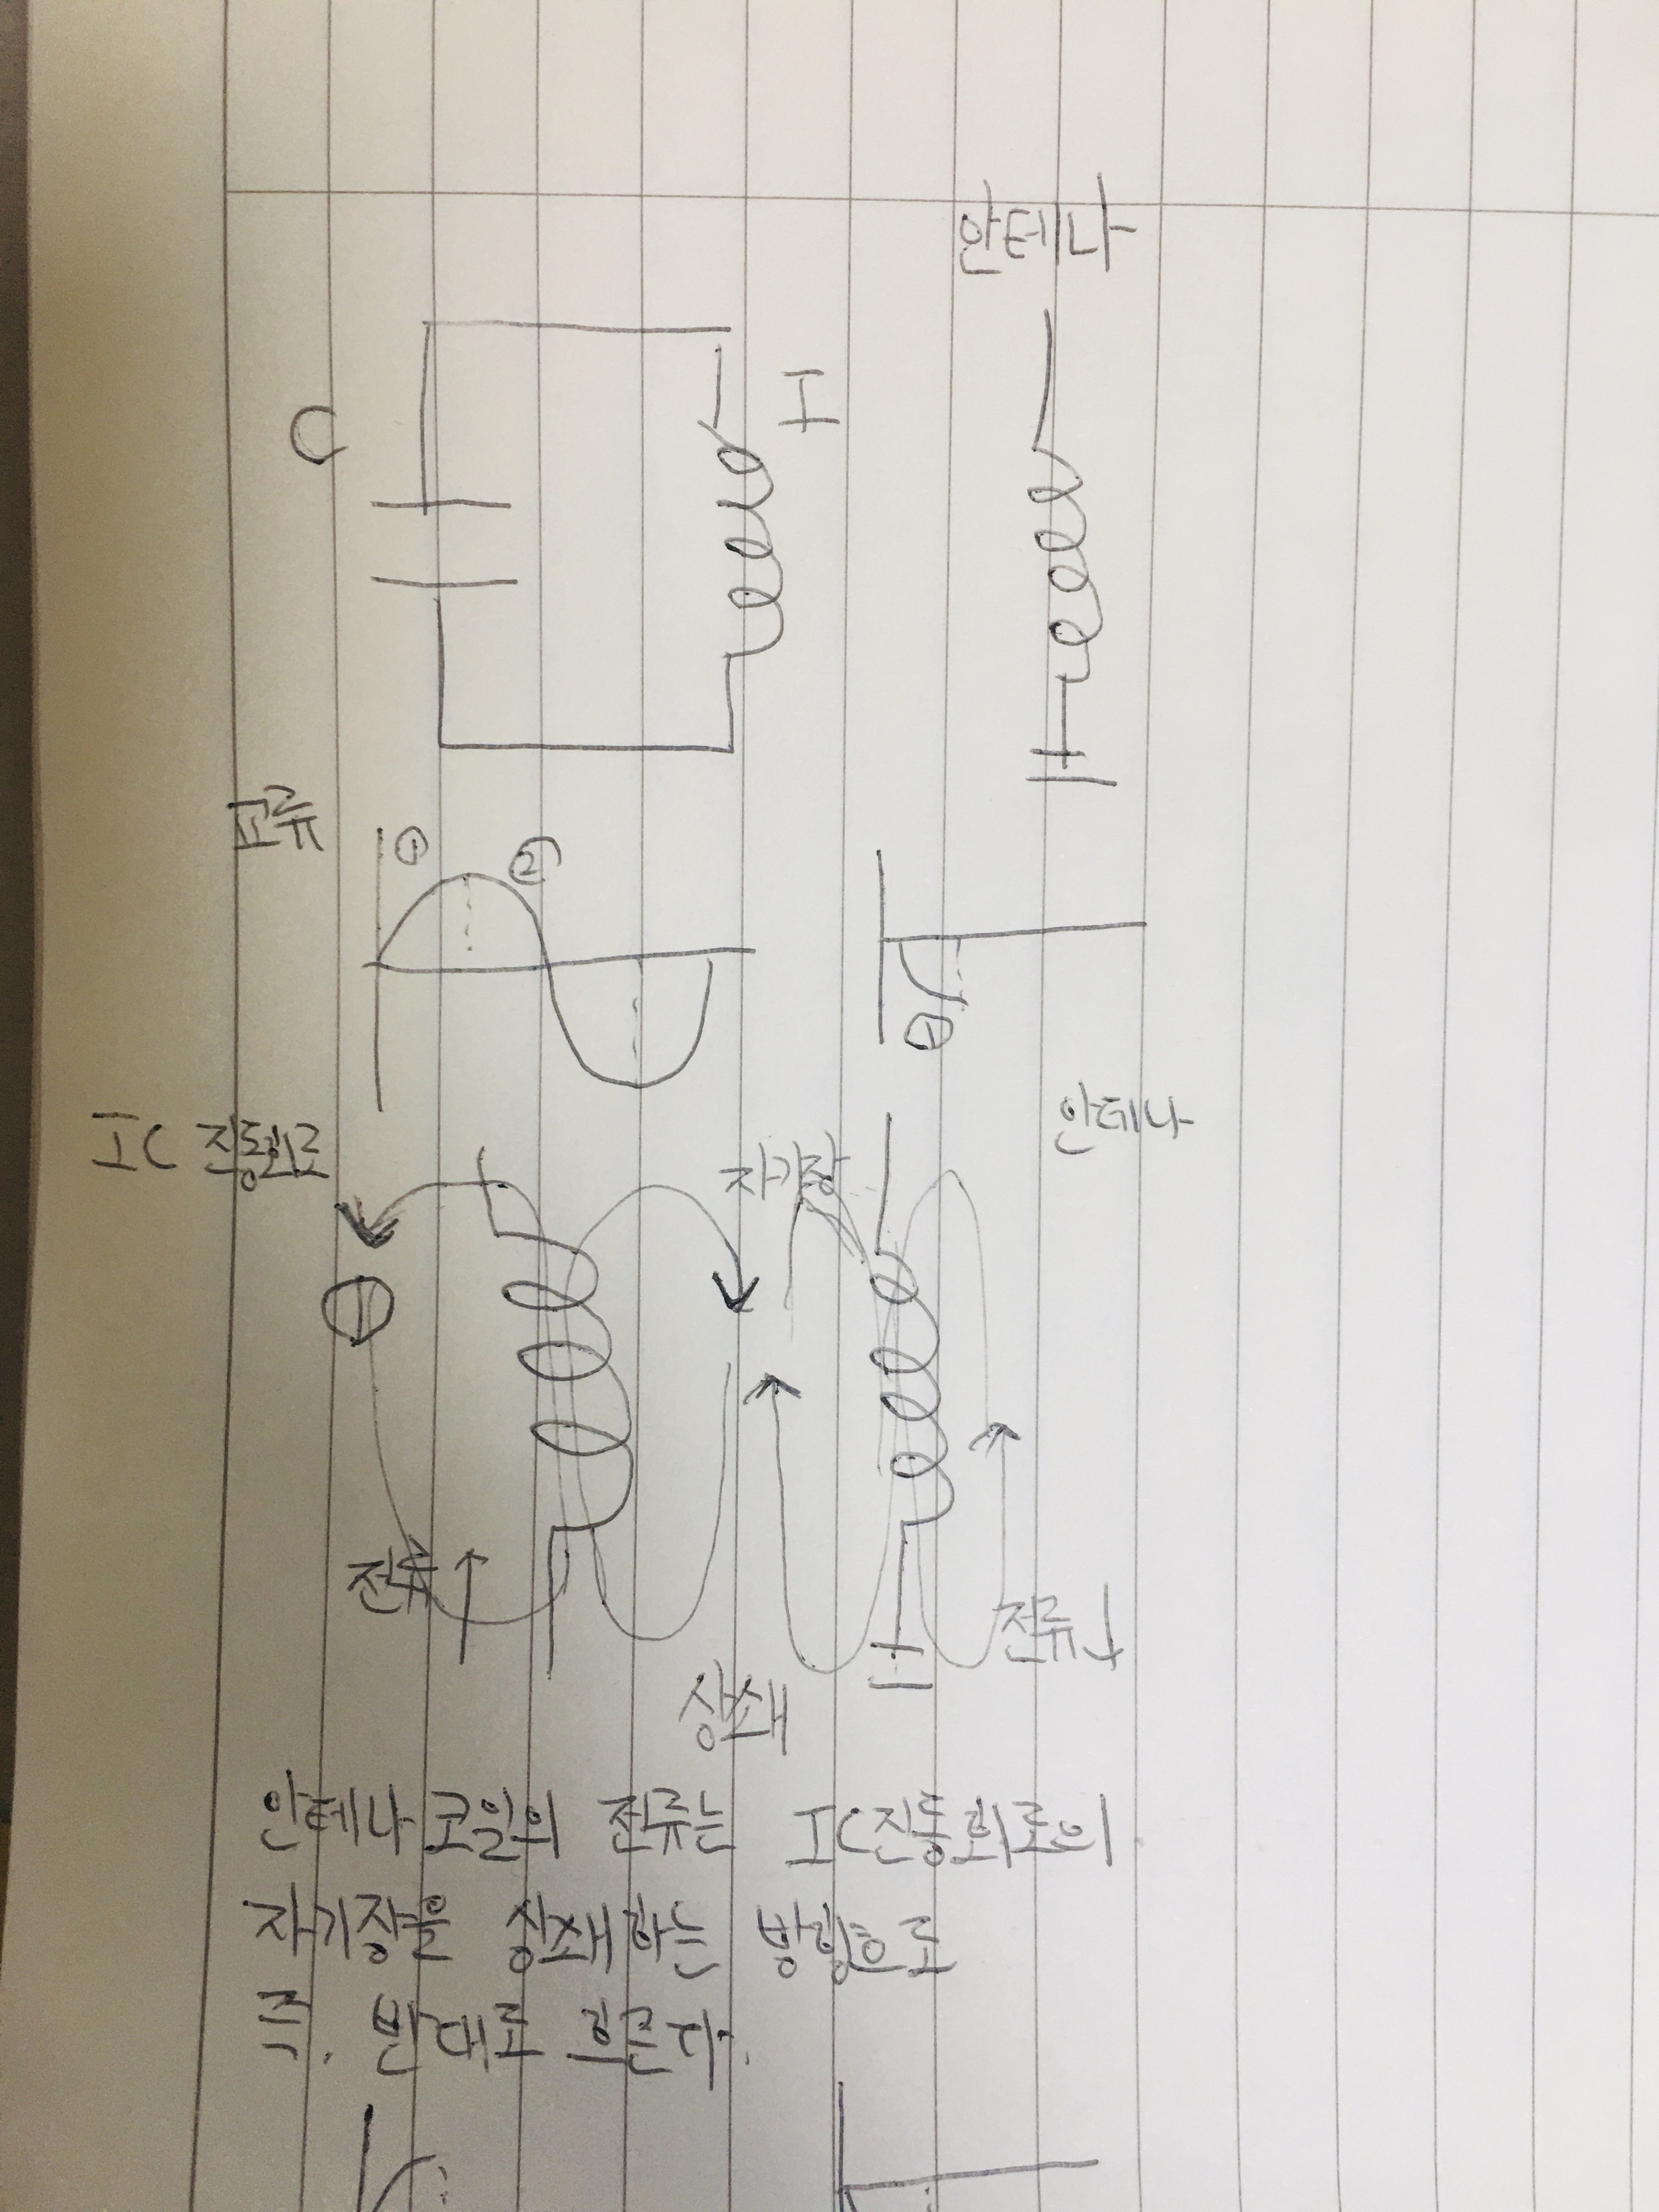 안테나
C
I
교류
①
②
①
IC 진동회로
자기장
안테나
전류
전류
상쇄
안테나 코일의 전류는 IC진동회로의
자기장을 상쇄하는 방향으로
즉. 반대로 흐른다.